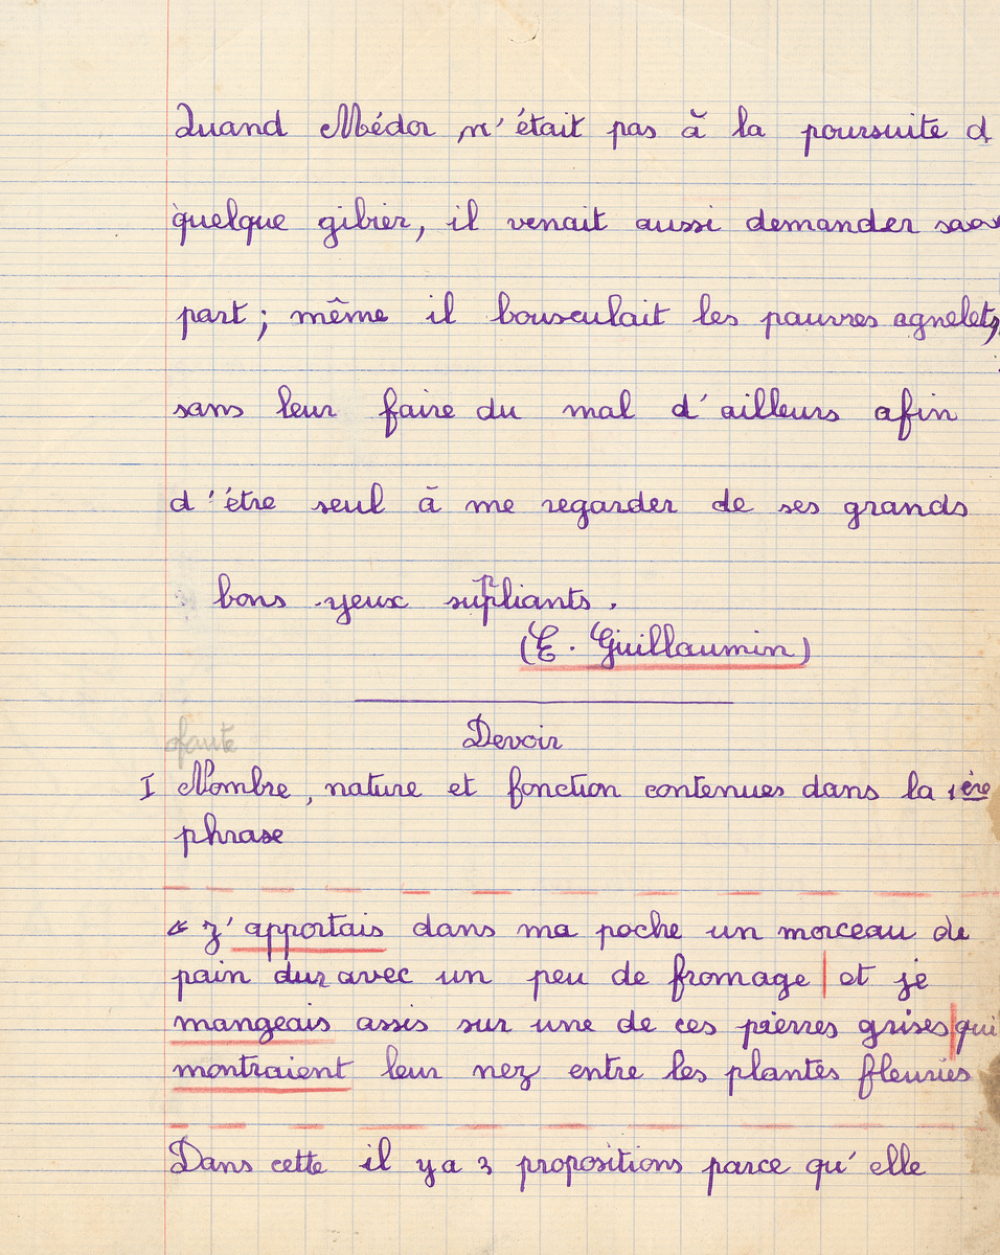 Quand Médor n'était pas à la poursuite d
quelque gibier, il venait aussi demander sa
part ; même il bousculait les pauvres agnelets,
sans leur faire du mal d'ailleurs afin
d'être seul à me regarder de ses grands
bons yeux suppliants.
(E. Guillaumin)
Devoir
faute
I Nombre, nature et fonction contenues dans la 1ère
phrase
« J'apportais dans ma poche un morceau de
pain dur avec un peu de fromage | et je
mangeais assis sur une de ces pierres grises | qui
montraient leur nez entre les plantes fleuries
Dans cette il y a 3 propositions parce qu'elle